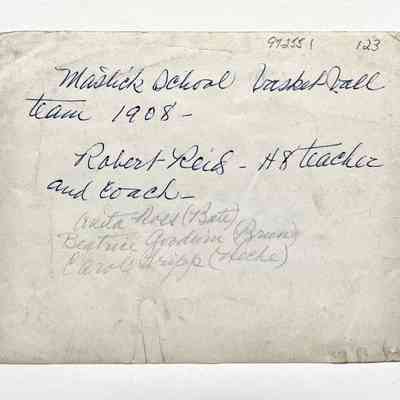 972551 123
Mastick School Basket Ball
team 1908 -
Robert Reid - H8 teacher
and coach -
Anita Ross (Bate)
Beatrice Goodwin Bruns
Carol Tripp (Neche)